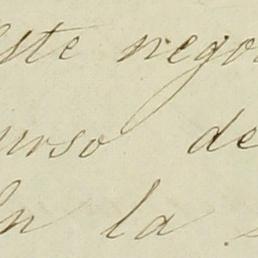 este nego
urso de
En la